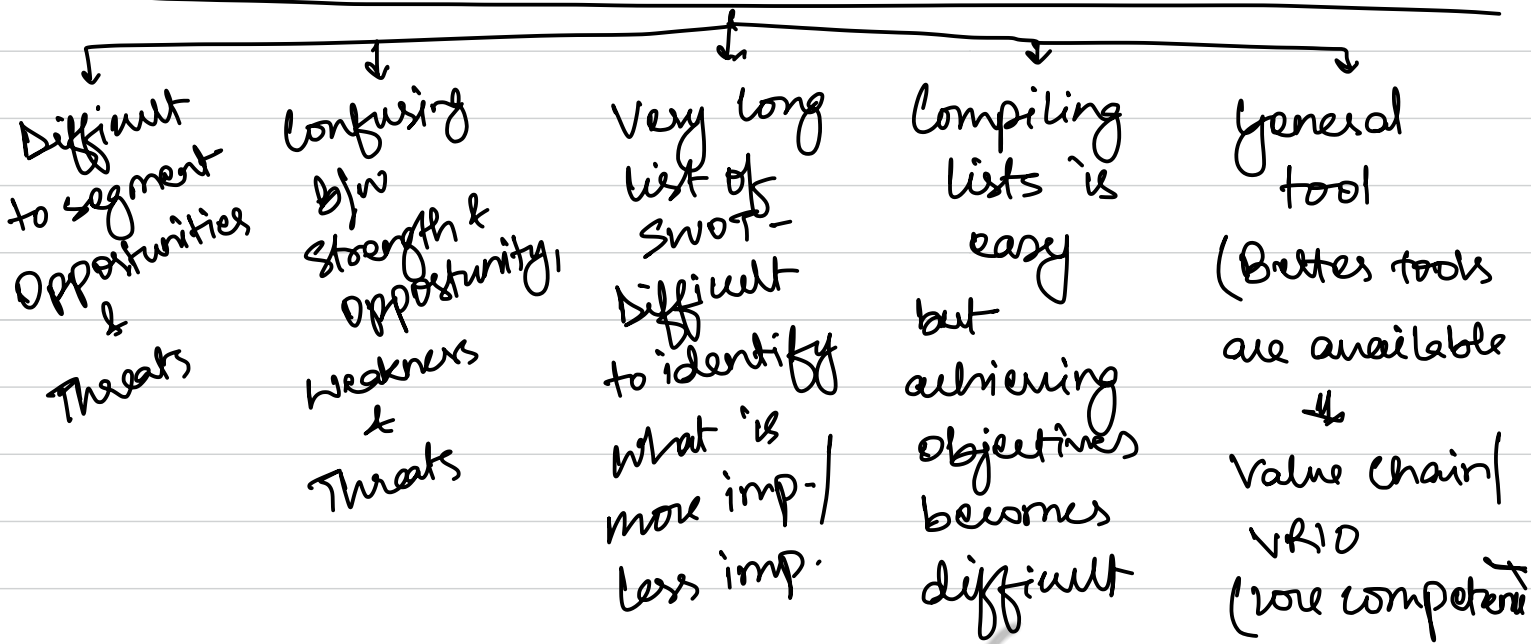 Difficult
to segment
Opportunities
&
Threats
Confusing
b/w
strength &
opportunity,
weakness
&
Threats
Very long
list of
SWOT-
Difficult
to identify
what is
more imp./
less imp.
Compiling
lists is
easy
but
achieving
objectives
becomes
difficult
General
tool
(Better tools
are available
Value Chain/
VRIO
(core competen